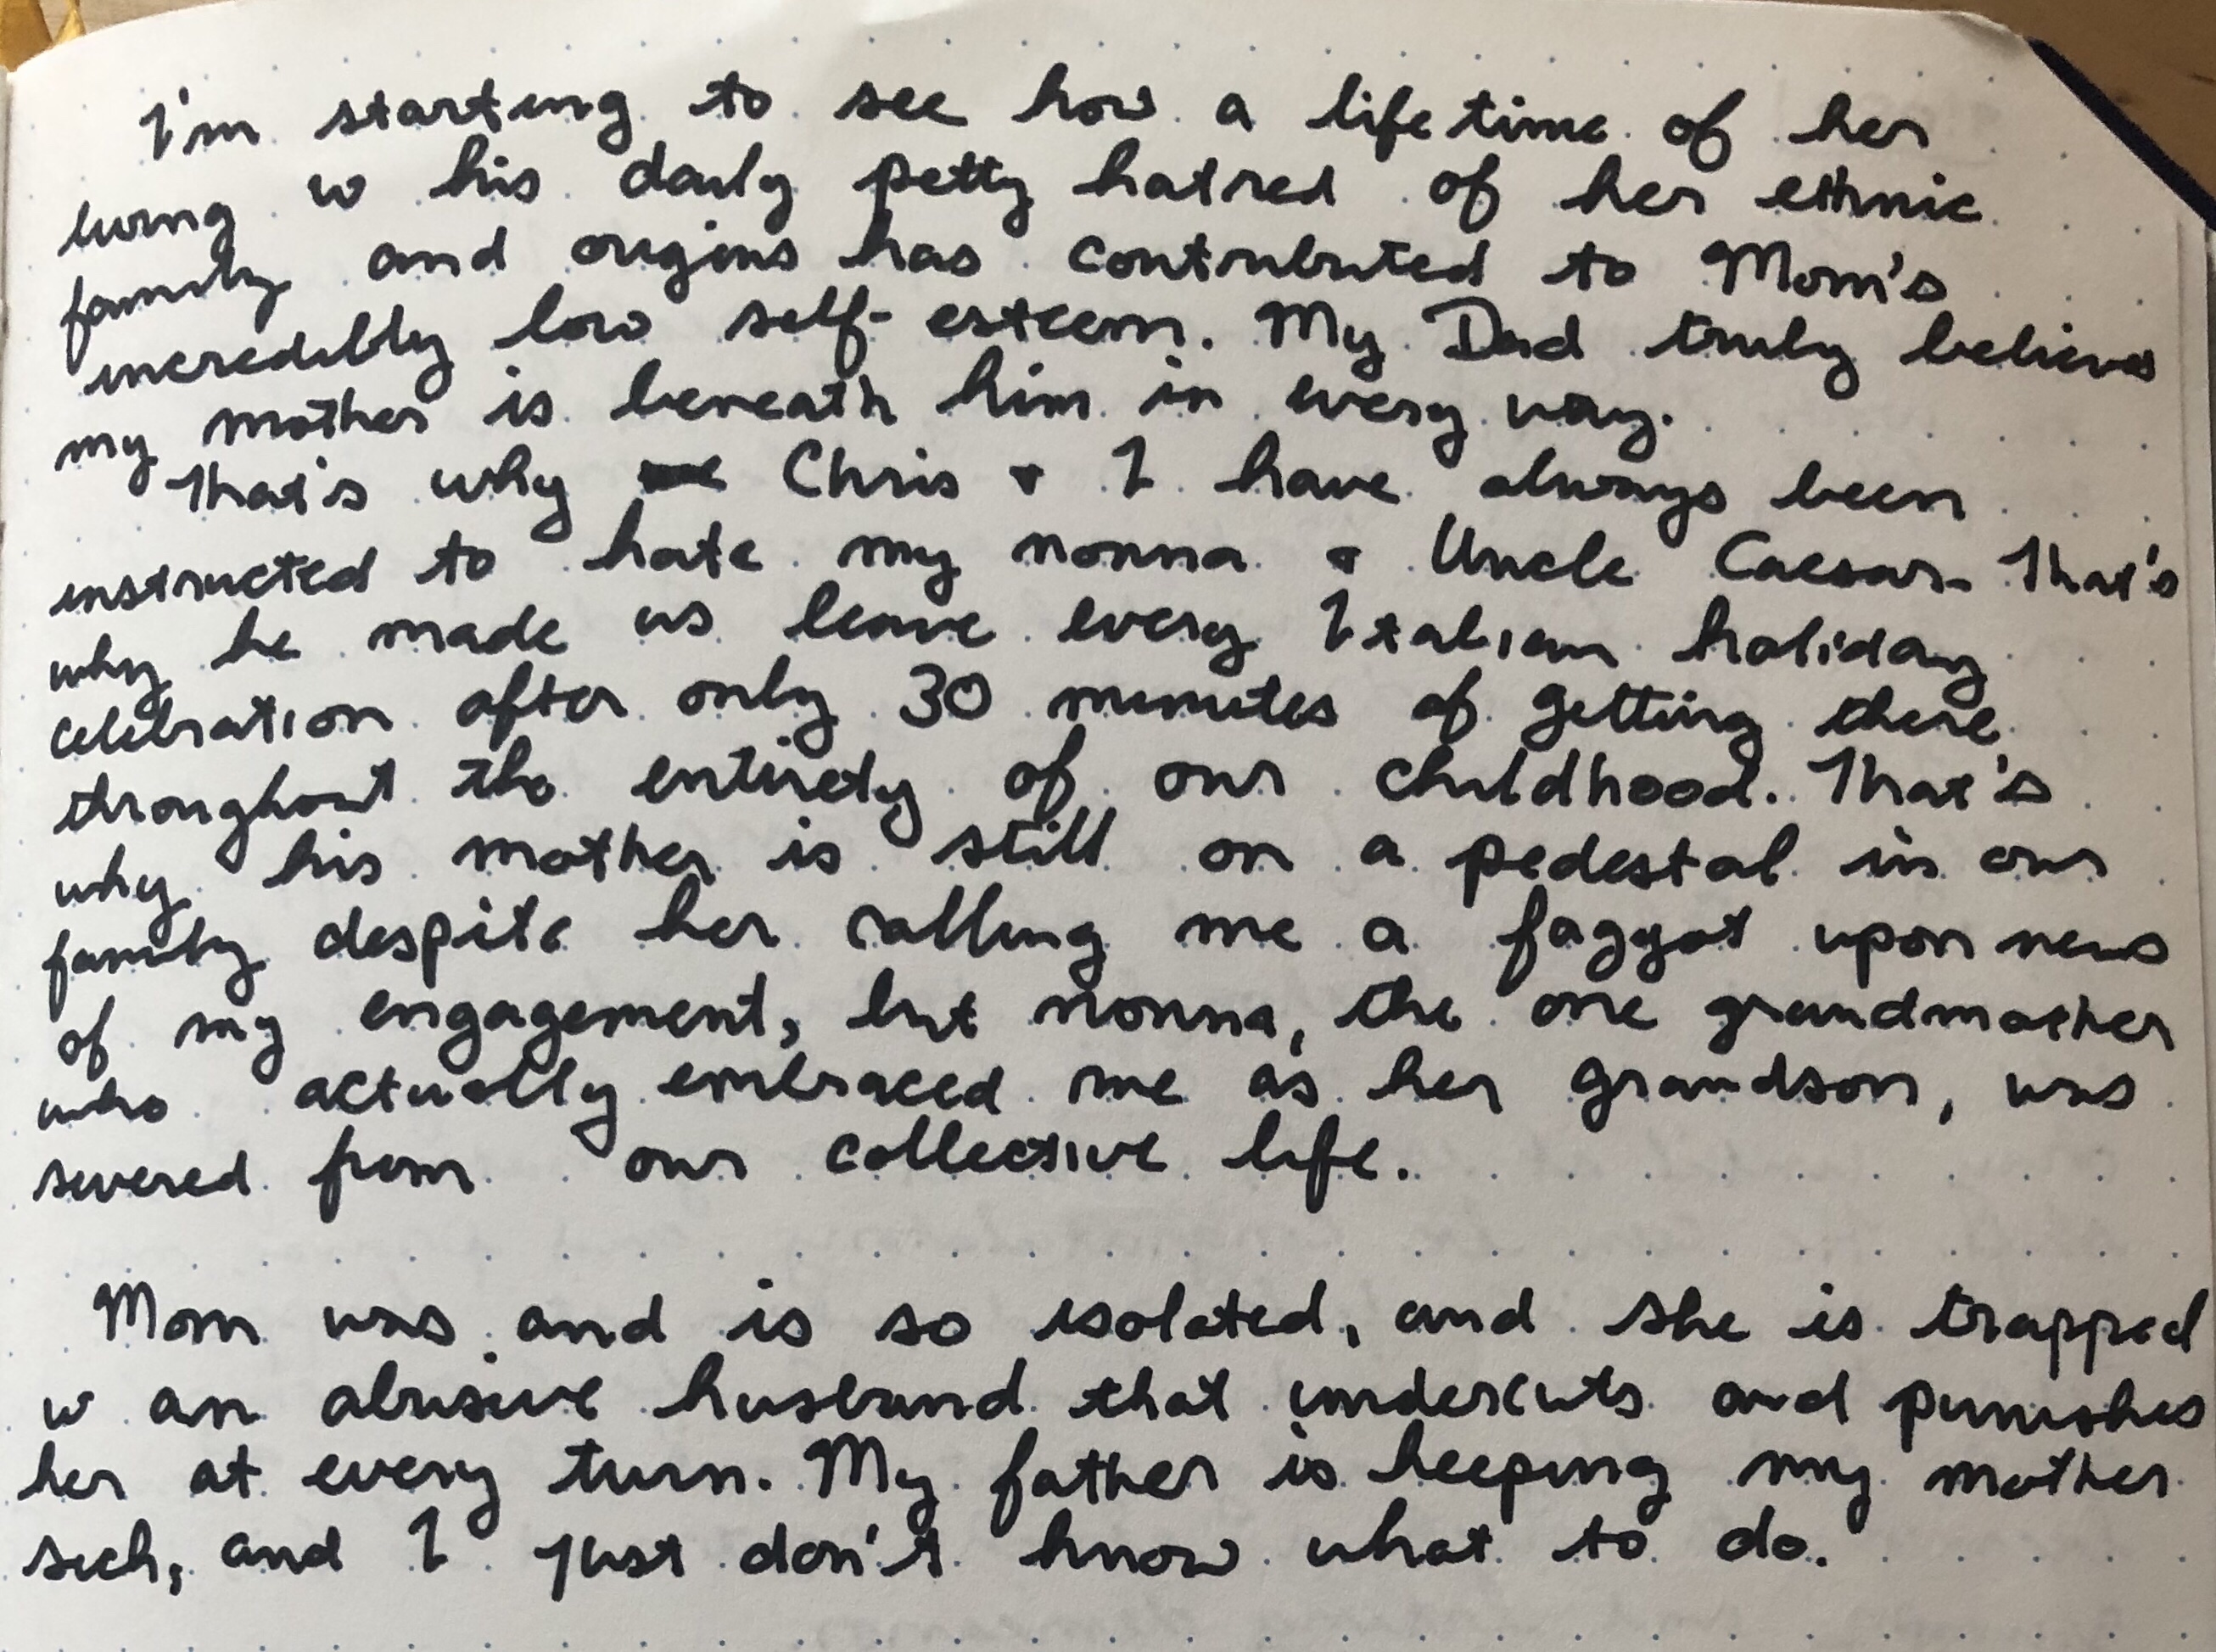 I'm starting to see how a lifetime of her
living w his daily petty hatred of her ethnic
family and origins has contributed to Mom's
incredibly low self-esteem. My Dad truly believes
my mother is beneath him in every way.
That's why Chris + I have always been
instructed to hate my nonna + Uncle Caesar. That's
why he made us leave every Italian holiday
celebration after only 30 minutes of getting there
throughout the entirety of our childhood. That's
why his mother is still on a pedestal in our
family despite her calling me a faggot upon news
of my engagement, but nonna, the one grandmother
who actually embraced me as her grandson, was
severed from our collective life.
Mom was and is so isolated, and she is trapped
w an abusive husband that undercuts and punishes
her at every turn. My father is keeping my mother
sick, and I just don't know what to do.